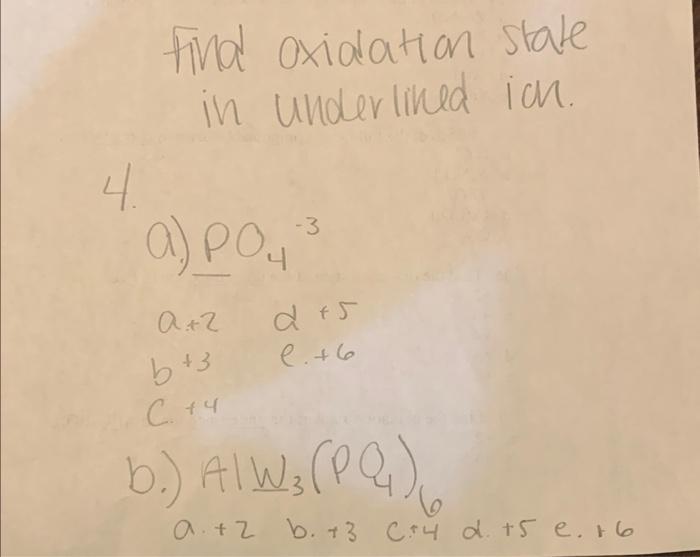 Find oxidation state
in underlined ion.
4.
a.) PO₄⁻³
a. +2 d +5
b +3 e. +6
c. +4
b.) AlW₃(PO₄)₆
a. +2 b. +3 c. +4 d. +5 e. +6